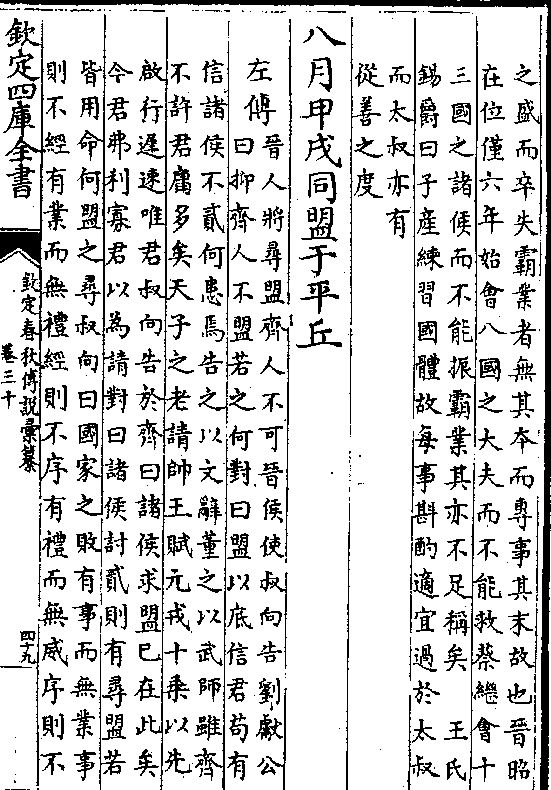 之盛而卒失霸業者無其本而專事其末故也晉昭
在位僅六年始會八國之大夫而不能救蔡繼會十
三國之諸侯而不能振霸業其亦不足稱矣　王氏
錫爵曰子產練習國體故每事斟酌適宜過於太叔
而太叔亦有
從善之度
八月甲戌同盟于平丘
左傳晉人將尋盟齊人不可晉侯使叔向告劉獻公
曰抑齊人不盟若之何對曰盟以底信君苟有
信諸侯不貳何患焉告之以文辭董之以武師雖齊
不許君庸多矣天子之老請帥王賦元戎十乘以先
啟行遲速唯君叔向告於齊曰諸侯求盟已在此矣
今君弗利寡君以為請對曰諸侯討貳則有尋盟若
皆用命何盟之尋叔向曰國家之敗有事而無業事
則不經有業而無禮經則不序有禮而無威序則不
欽定四庫全書
欽定春秋傳說彙纂
卷三十
四十九